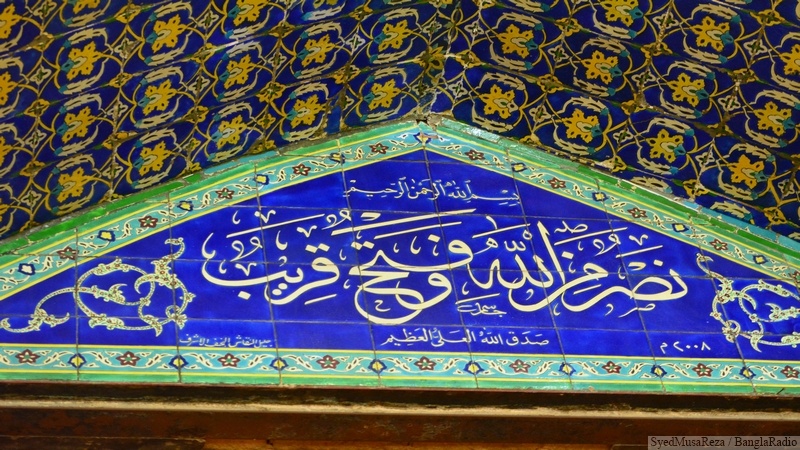 بسم الله الرحمن الرحيم
نصر من الله وفتح قريب
صدق الله العلي العظيم
٢٠٠٨ م
SyedMusaReza / BanglaRadio